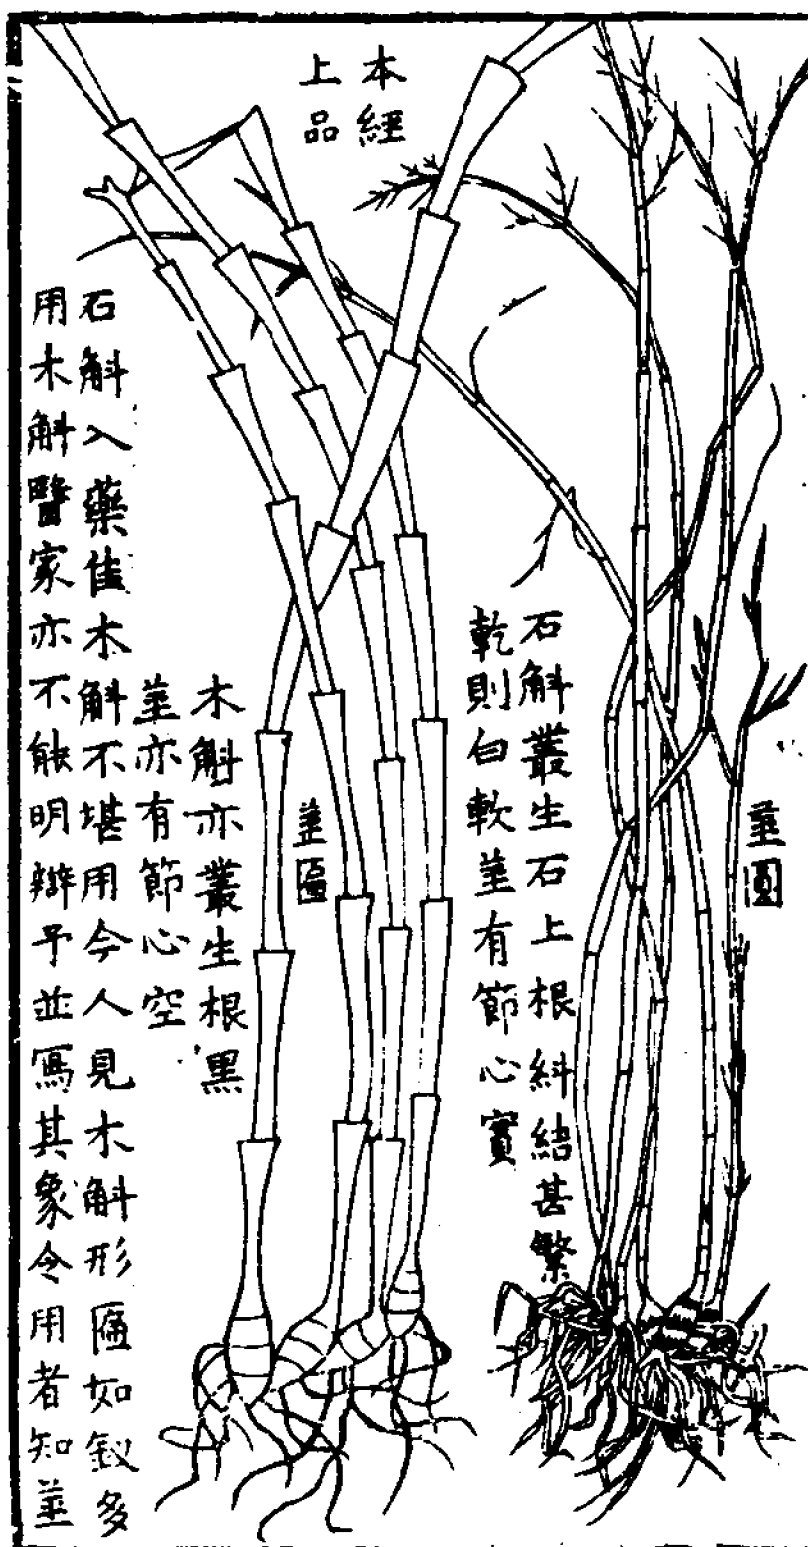 本經
上品
莖圓
石斛叢生石上根糾結甚繁
乾則白軟莖有節心實
莖匾
木斛亦叢生根黑
莖亦有節心空
石斛入藥佳木斛不堪用今人見木斛形匾如釵多
用木斛醫家亦不能明辯予並寫其象令用者知莖